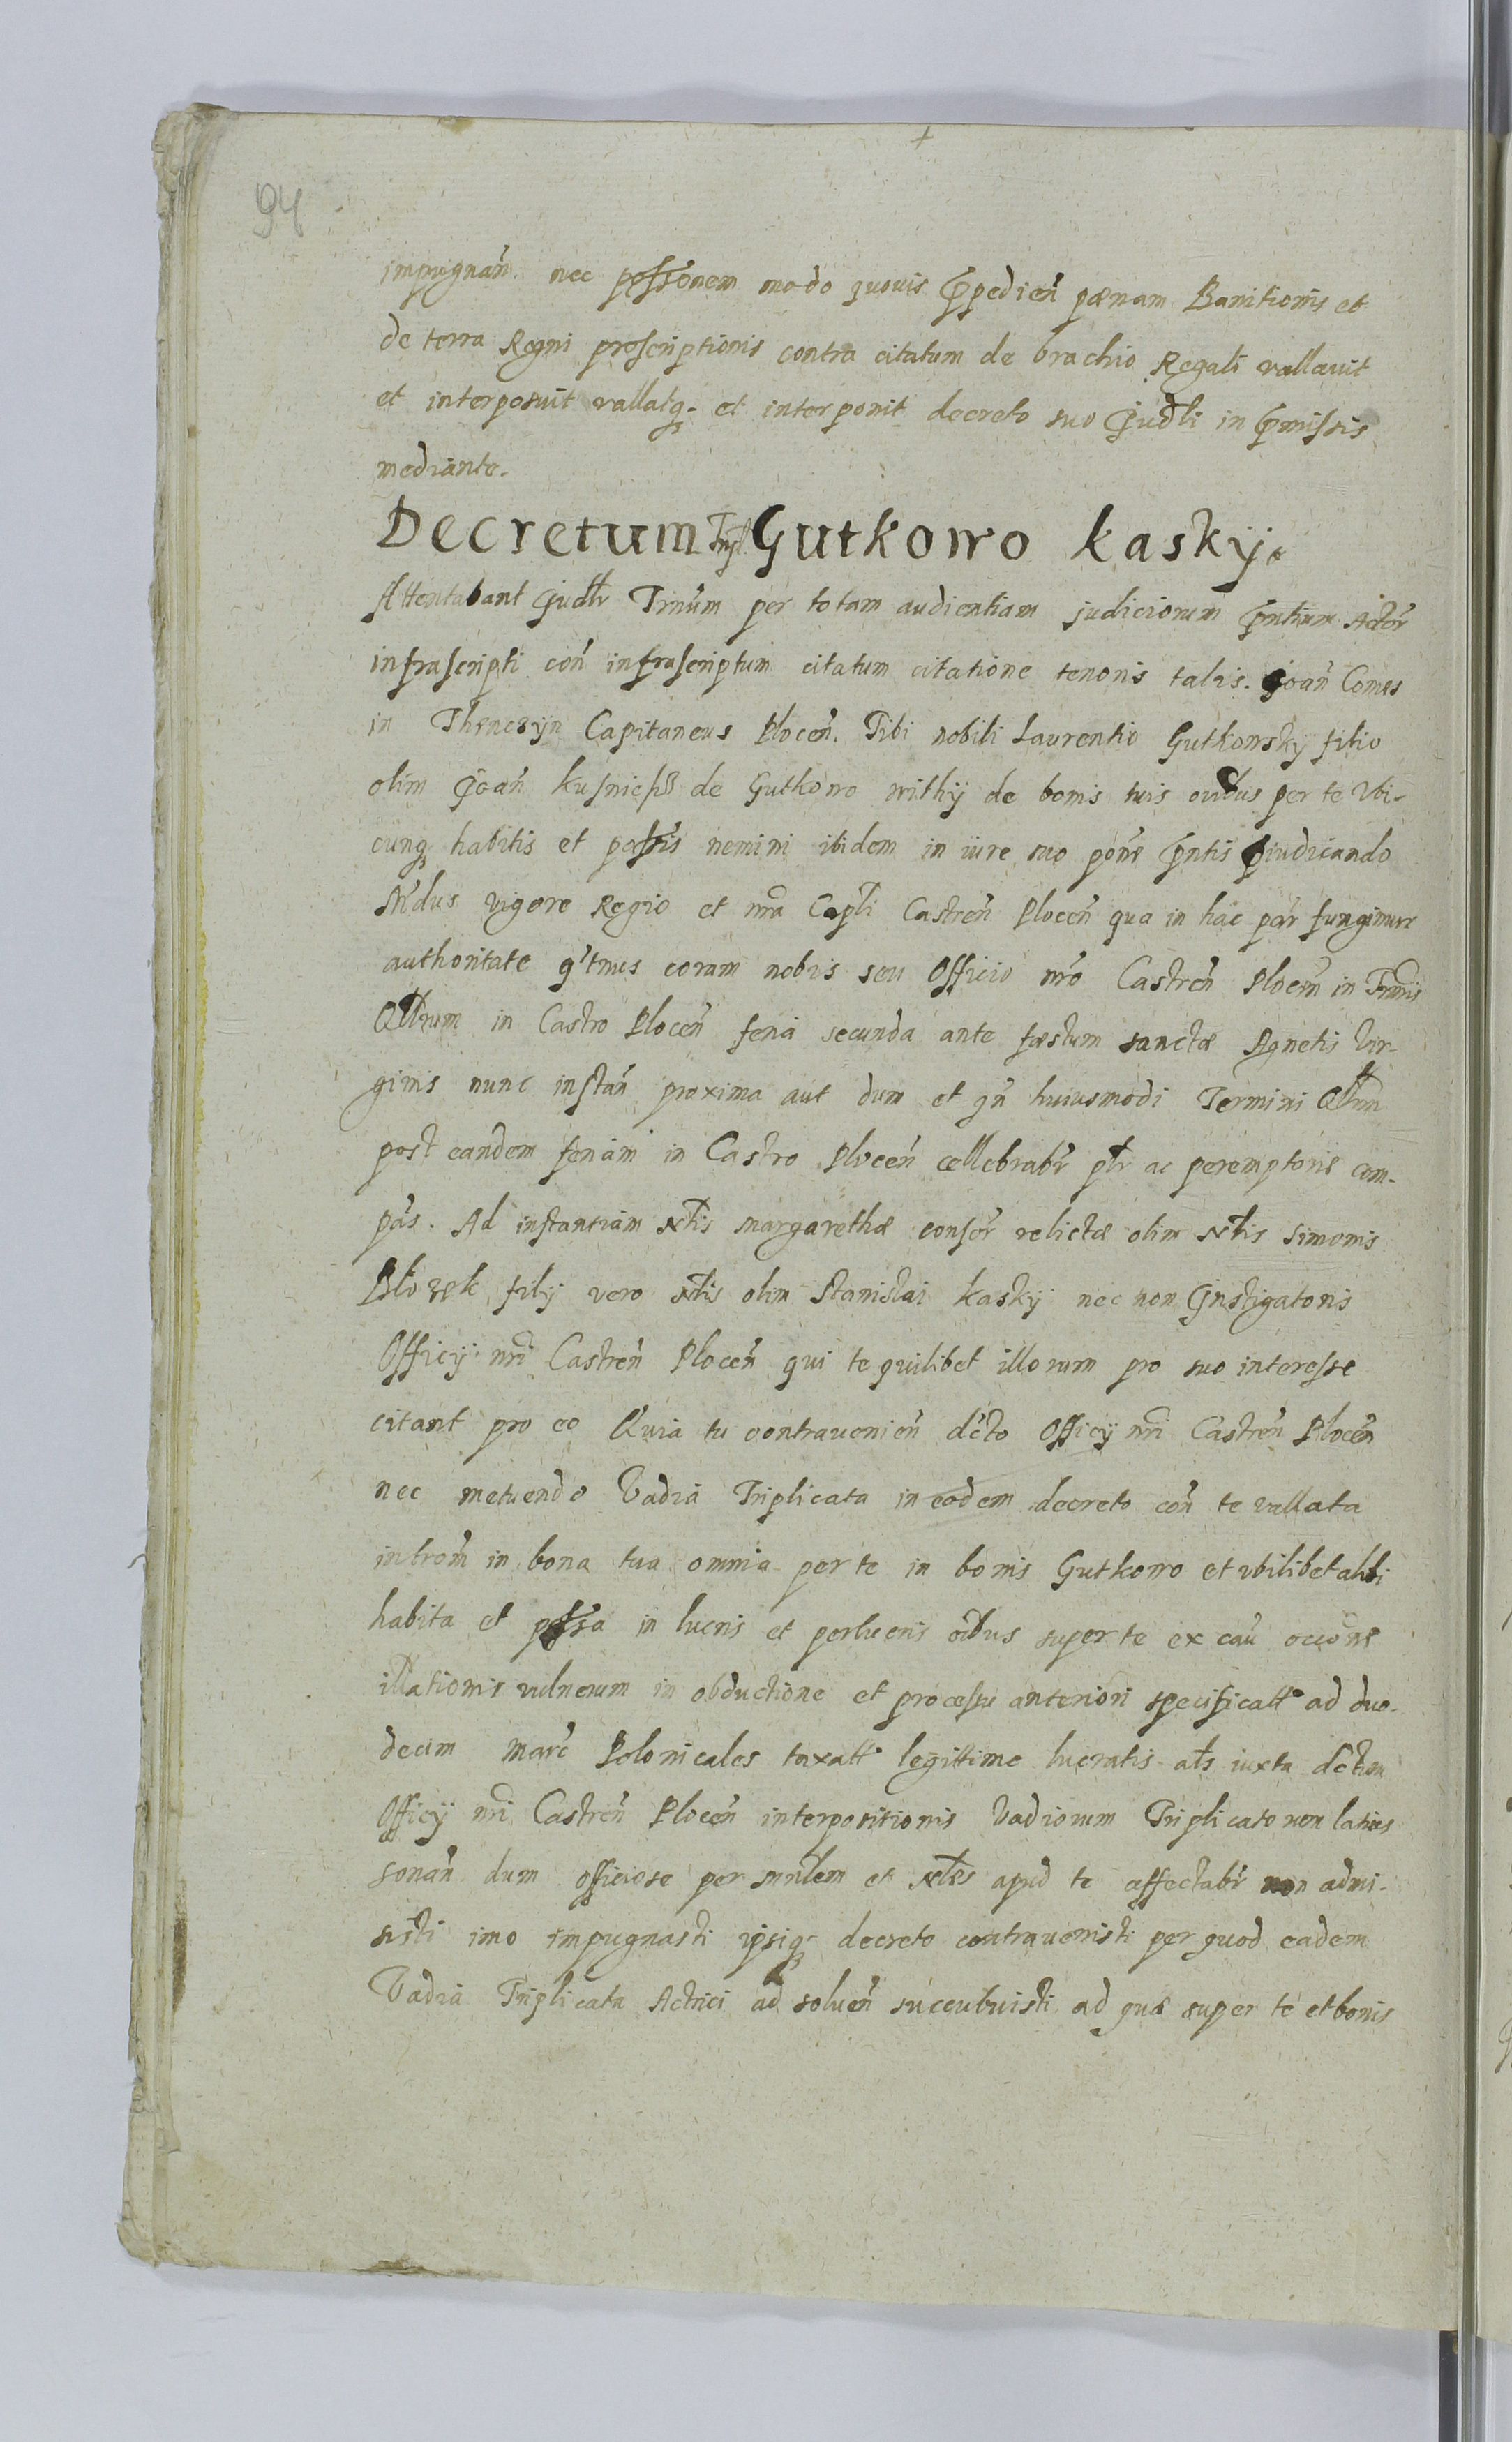 94
impugnan̄ nec possonem modo quouis p̄pedien̄ pœnam Banitionis et
de terra Regni proscriptionis contra citatum de brachio Regali vallauit
et interposuit vallatq. et interponit decreto suo Judli in p̄missis
mediante.
Decretum Inter Gutkowo kaskÿ.
Attentabant Judlr Trnūm per totam audientiam judiciorum p̄ntium Actor̄
infrascripti con̄ infrascriptum citatum citatione tenoris talis. Joan̄ Comes
in Thenczÿn Capitaneus Plocen̄. Tibi nobili Laurentio Gutkowskÿ filio
olim Joan̄ kusnierz de Gutkowo withÿ de bonis tuis oībus per te Vbi-
cunq habitis et possis nemini ibidem in iure suo pōne p̄ntis p̄iudicando
Mdus vigore Regio et nrā Capli Castren̄ Plocen̄ qua in hac par̄ fungimur
authoritate q̄tnus coram nobis seu Officio nr̄o Castren̄ Plocen̄ in Trmis
Qllrum in Castro Plocen̄ feria secunda ante fæstum sanctæ Agnetis Vir-
ginis nunc instan̄ proxima aut dum et qn̄ huiusmodi Termini Qllrum
post eandem feriam in Castro Plocen̄ cellebrabr̄ ptr ac peremptorie com-
pas. Ad instantiam Nlis margarethæ consor̄ relictæ olim Nlis Simonis
filÿ vero Nlis olim Stanislai kaskÿ nec non Instigatoris
Officÿ nrī Castren̄ Plocen̄ qui te quilibet illorum pro suo interesse
citant pro eo Quia tu contrauenien̄ dc̄to Officÿ nrī Castren̄ Plocen̄
nec metuendo Vadia Triplicata in eodem decreto con̄ te vallata
introm̄ in bona tua omnia per te in bonis Gutkowo et vbilibet alibi
habita et possa in lucris et perlucris oībus super te ex cau occōne
illationis vulnerum in obductione et processu anteriori specificatt ad duo-
decim marc̄ Polonicales taxatt legittime lucratis als iuxta dctum
Officÿ nrī Castren̄ Plocen̄ interpositionis Vadiorum Triplicato non latius
sonan̄ dum officiose per mnlem et Nles apud te affectabr̄ non admi-
sisti imo impugnasti ipsiq decreto contrauenisti per quod eadem
Vadia Triplicata Actrici ad soluen̄ succubuisti ad quæ super te et bonis